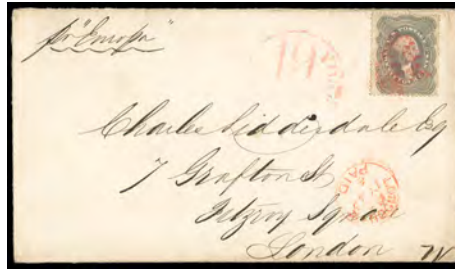 per "Europa"
19
Charles Lidderdale Esq
7 Grafton St
Fitzroy Square
London
W
PAID